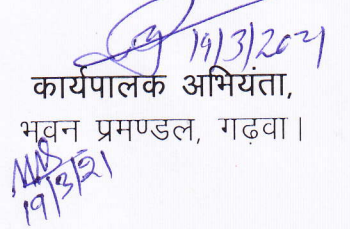 19/3/2021
कार्यपालक अभियंता,
भवन प्रमण्डल, गढ़वा।
19/3/21